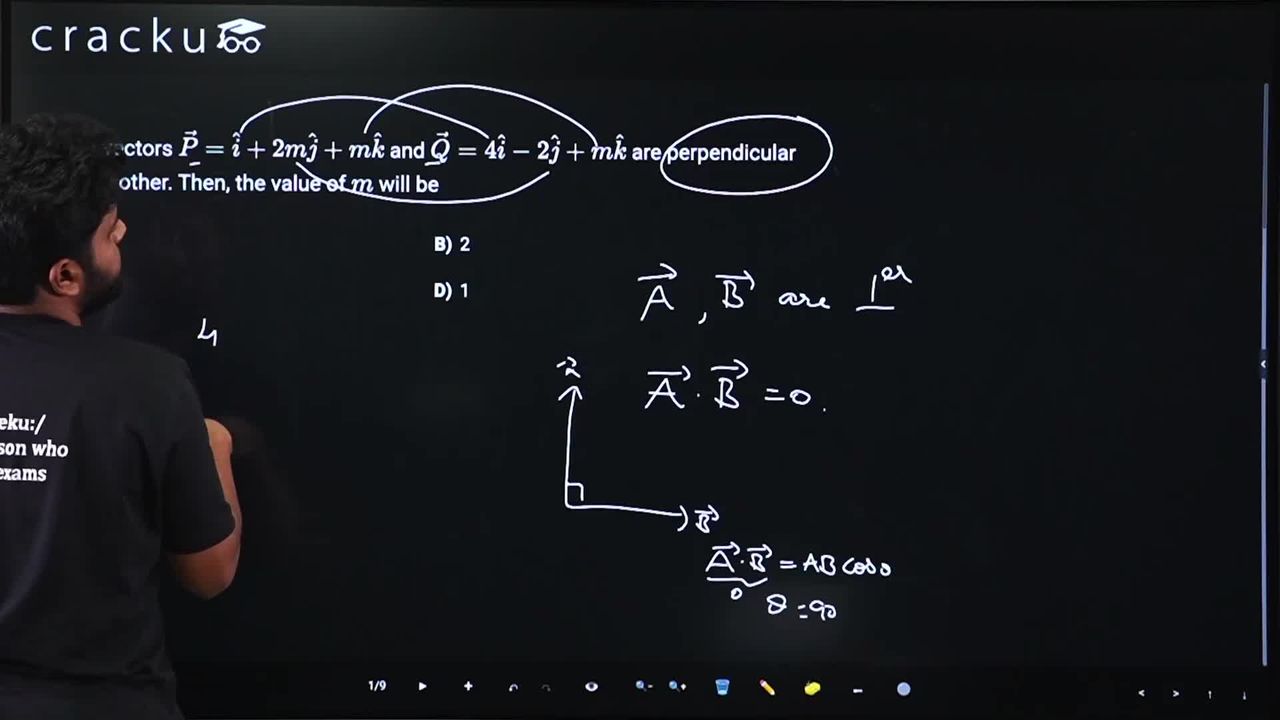 cracku
vectors \vec{P} = \hat{i} + 2m\hat{j} + m\hat{k} and \vec{Q} = 4\hat{i} − 2\hat{j} + m\hat{k} are perpendicular
other. Then, the value of m will be
B) 2
D) 1
\vec{A}, \vec{B} are ⊥er
4
\vec{A} · \vec{B} = 0.
\vec{B}
\vec{A} · \vec{B} = AB cos θ
0 θ = 90
eku:/
son who
exams
1/9